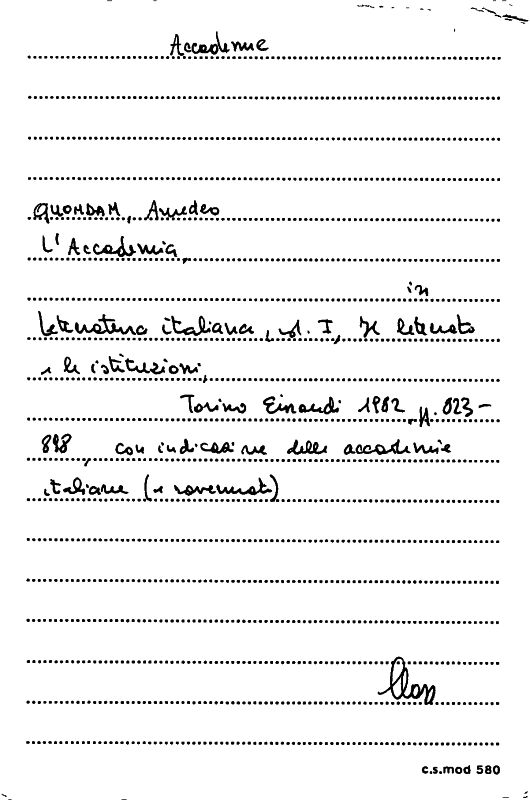 Accademie
QUONDAM, Amedeo
L'Accademia,
in
Letteratura italiana, vol. I, Il letterato
e le istituzioni,
Torino Einaudi 1982, p. 823-
898, con indicazione delle accademie
italiane (e ravennati)
c.s.mod 580